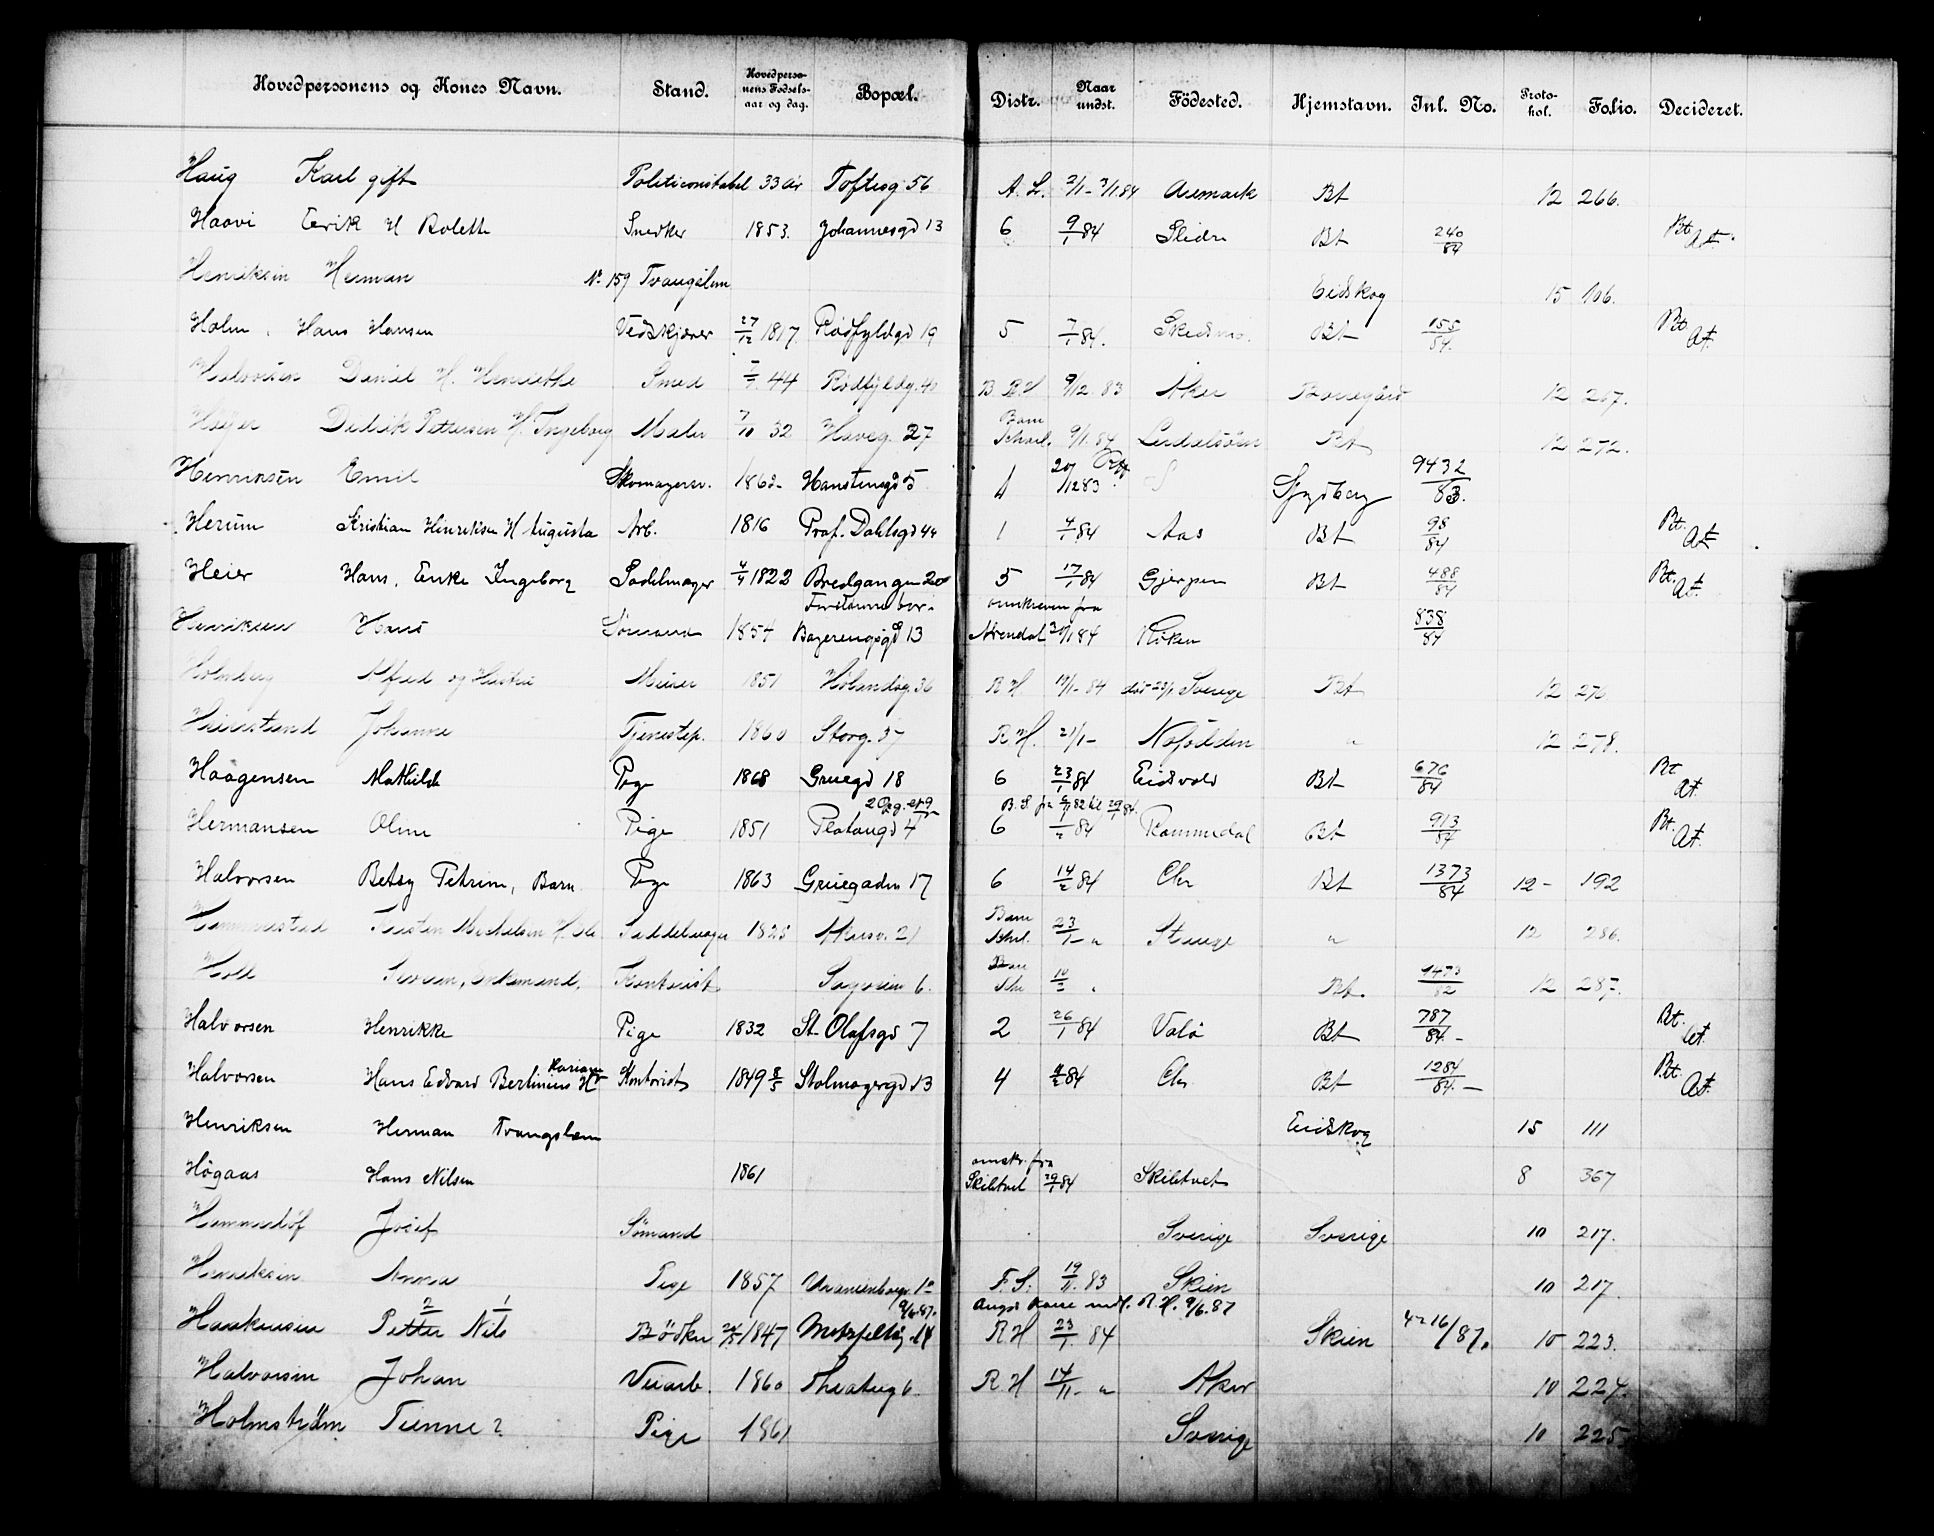 Hovedpersonens og Kones Navn. Stand. Hovedpersonens Fødselsaar og dag. Bopæl. Distr. Naar undst. Födested. Hjemstavn. Inl. No. Protokol. Folio. Decideret.
Haug Karl gift Politiconstabel 33 år Toftesg 56 A. L. 2/1 - 3/1 84 Aremark Bt 12 266.
Haavi Eerik H Bolette Snedker 1853. Johannesgd 13 6 9/1 84 Slidre Bt 240/84 Bt. At.
Henriksen Herman No 159 Tvangslem Eidskog 15 106.
Holm, Hans Hansen Vedskjærer 27/12 1817. Rödfyldgd 19 5 7/1 84. Skedsmo. Bt 155/84. Bt. At.
Halvorsen Daniel H. Henriette Smed 44 Rödfyldg. 40 B. RH 9/12. 83 Aker Borregård 12 267.
Høyer Didrik Pettersen H. Ingeborg Maler 7/10 32 Haveg. 27 9/1. 84 Lerdalsören Bt 12 272.
Henriksen Emil Skomagersv. Hanstensgd 5 4 20/12 83 Bt. Spydberg 9432/83.
Herum Kristian Henriksen H Augusta Arb. 1816 Prof. Dahlsgd 44 1 4/1 84 Aas Bt 98/84 Bt. At.
Heier Hans, Enke Ingeborg Sadelmager 4/4 1822 Bredgangen 20 5 17/1 84 Gjerpen Bt 488/84 Bt. At.
Henriksen Hans Sömand 1854 Bogerengsgd 13 omskreven fra Arendal 84 Röken 838/84
Holmberg Alfred og Hustru Murer 1851 Hölandsg. 36 RH 84 död 23/1 Sverige Bt 12 276
Johanne Tjenestep. 1860 Storg. 37 RH. 21/1 - Notodden " 12 278.
Haagensen Mathilde Pige 1868 Gruegd 18 6 23/1 84 Eidsvold Bt 676/84 Bt At.
Hermansen Oline Pige 1851 Platougd 4 2 Opg. 6 84 Rommedal Bt 913/84 Bt. At.
Halvorsen Betsy Petrine, Barn Pige 1863 Gruegaden 17 6 14/2 84 Chr Bt 1373/84 12 - 192
Hammerstad Torsten Michelsen Saddelmager 1825 Akersv. 21 23/1 - " Stange " 12 286.
Holt Enkemand, Kontorist Sagveien 6. Bt. 9473/82 12 287.
Halvorsen Henrikke Pige 1832 St. Olafsgd 7 2 26/1 84 Valø Bt 787/84. - Bt. At.
Halvorsen Hans Edvard Bertinius H Karine Kontorist 1849 8/5 Stolmagergd 13 4 4/2 84 Chr Bt 1284/84. - Bt. At.
Henriksen Herman Tvangslem Eidskog 15 111
Högaas Hans Nilsen 1861 omskr. fra Skibtvet 29/1 84 Skibtvet 8 367
Josef Sömand Sverige Sverige 10 217.
Henriksen Anna Pige 1857. Uranienborgv. F. S. 19/11. 83 Skien 10 217.
Petter Nils Bödker 24/5 1847 Metzfeltsg. 14 9/6. 87. R. H. 9/6. 87 RH 23/1. 84 Skien 4216/87. 10 223.
Halvorsen Johan Veiarb. 1860 Theaterg 6. RH 14/11 - " Aker 10 224.
Holmström Tienne ? Pige 1861 Sverige 10 225.